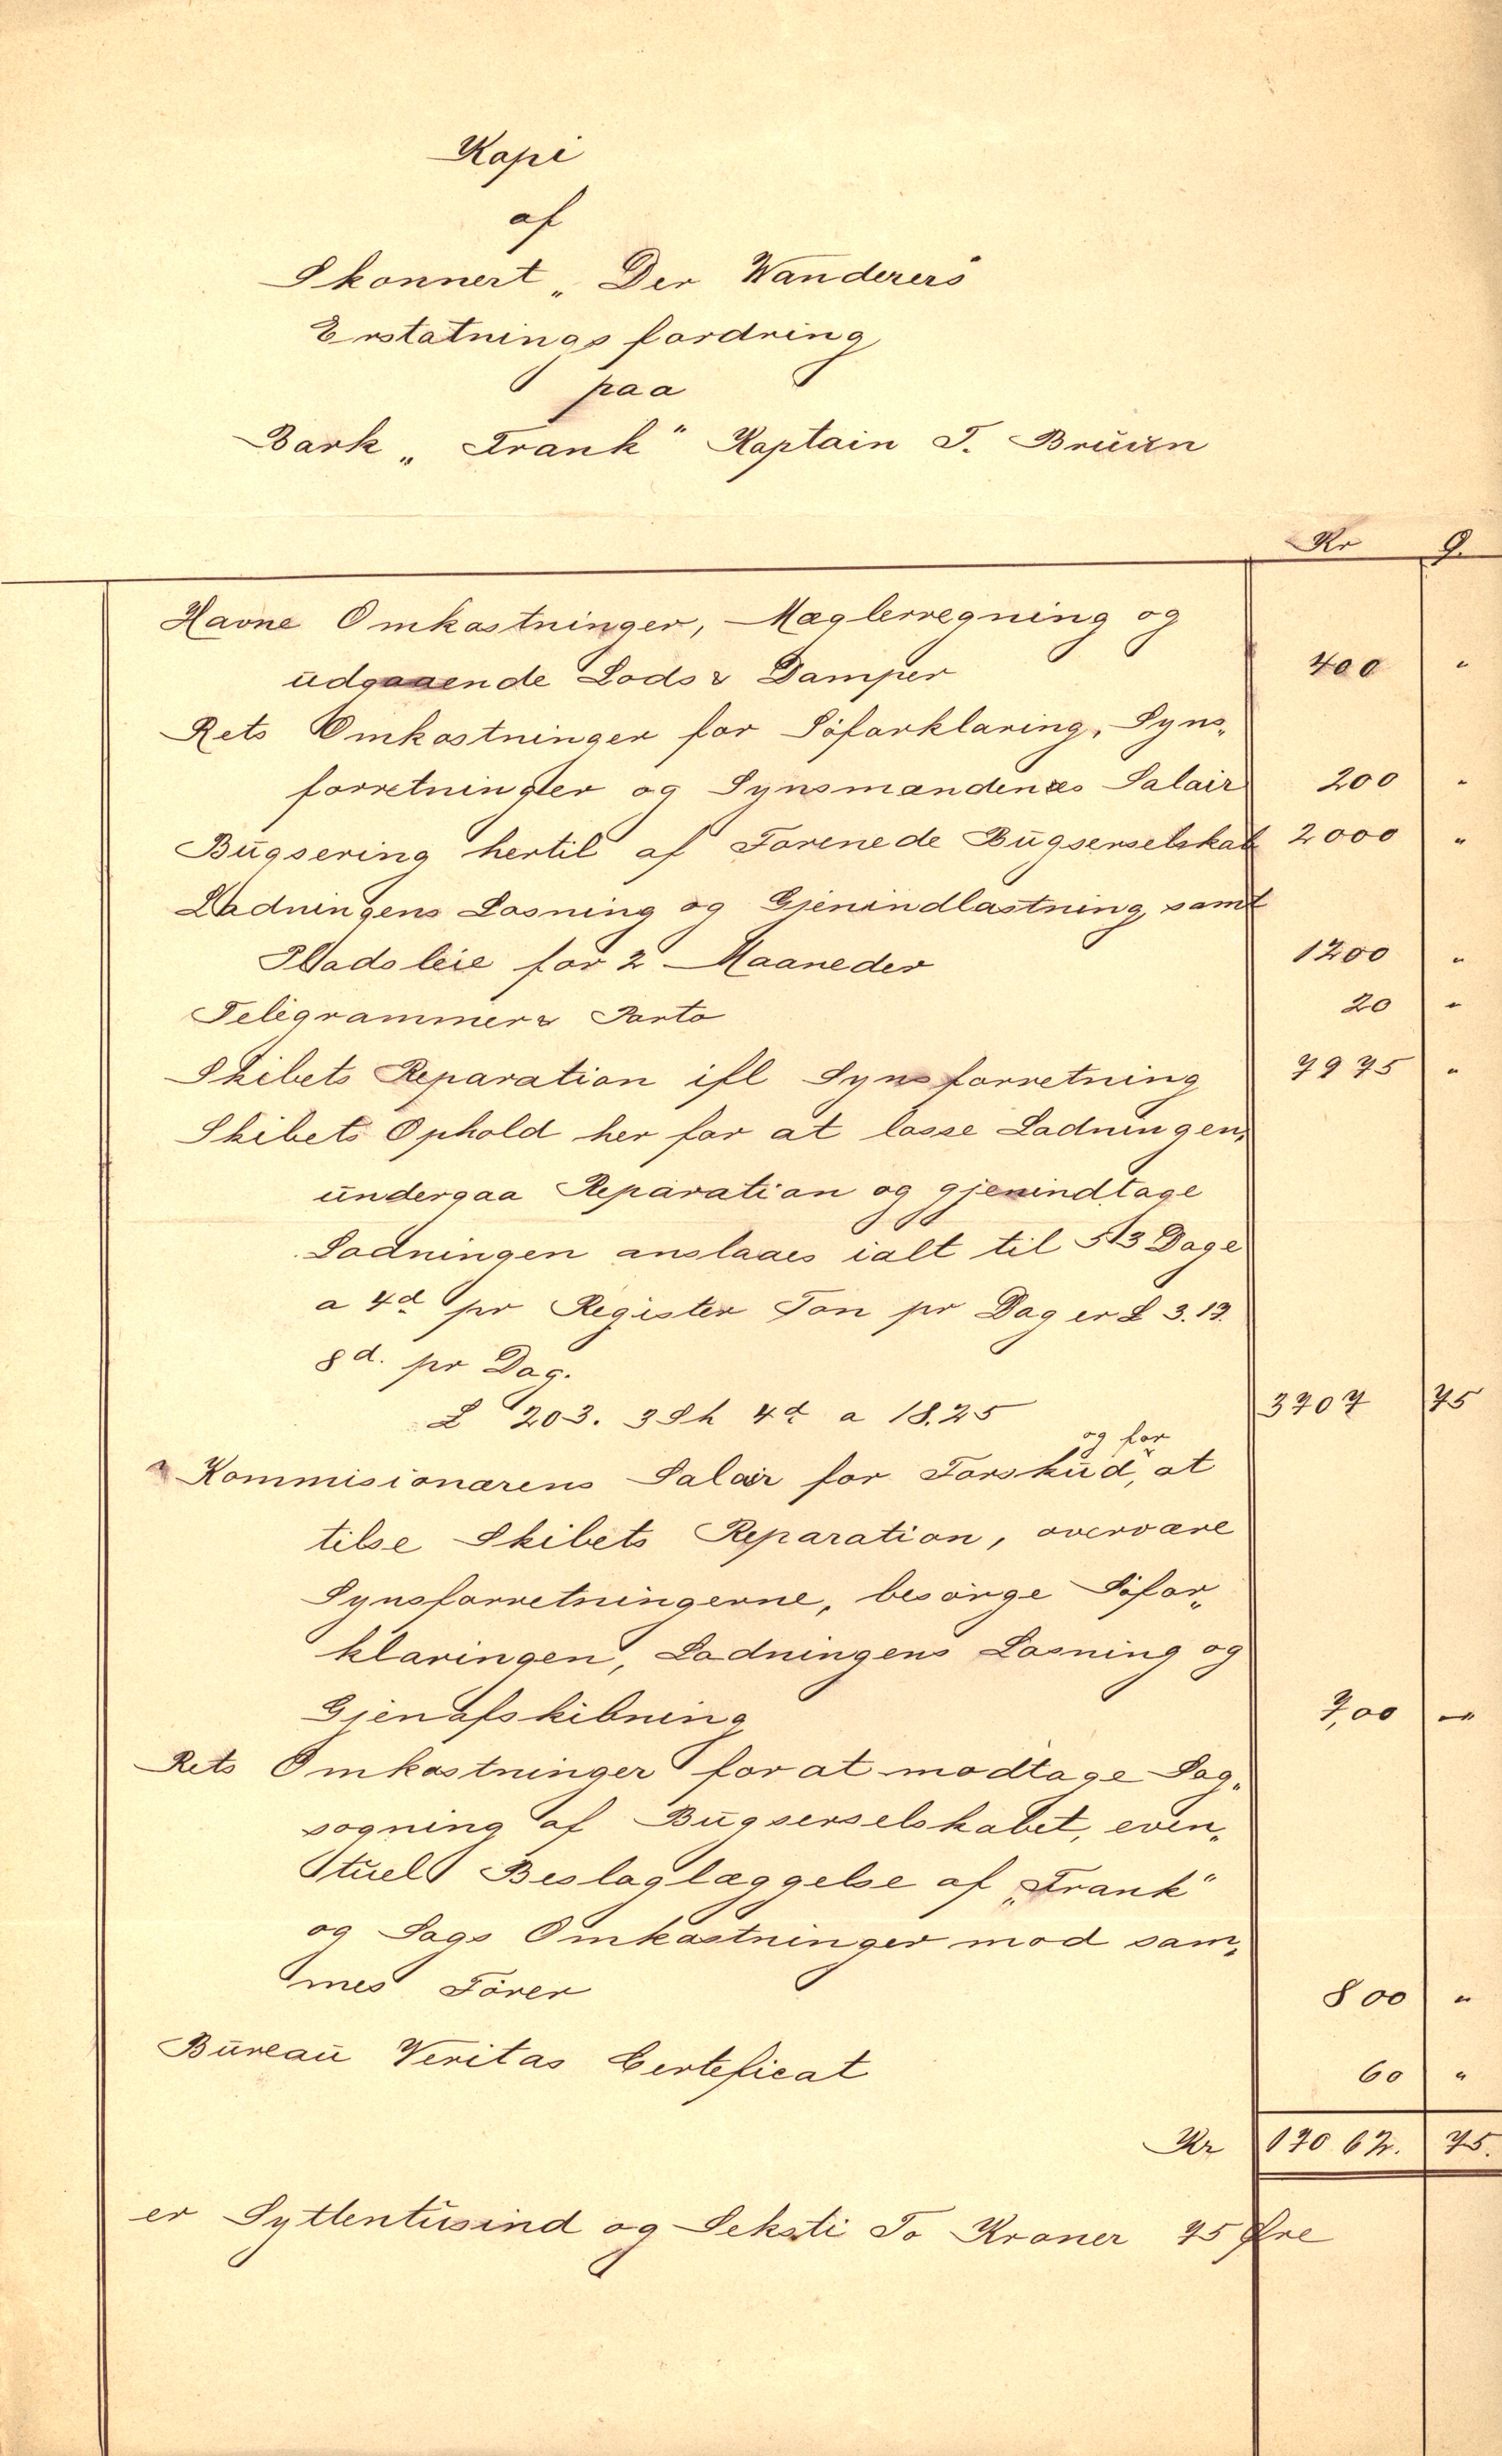 Kopi
af
Skonnert „Der Wanderers"
Erstatningsfordring
paa
Bark „Frank" Kaptain T. Bruun
Kr Ø.
Havne Omkostninger, Mæglerregning og
udgaaende Lods & Damper 400 "
Rets Omkostninger for Söforklaring, Syns„
forretninger og Synsmændenes Salair 200 "
Bugsering hertil af Forenede Bugserselskab 2000 "
Ladningens Losning og Gjenindlastning samt
Pladsleie for 2 Maaneder 1200 "
Telegrammer & Porto 20 "
Skibets Reparation ifl Synsforretning 7975 "
Skibets Ophold her for at losse Ladningen,
undergaa Reparation og gjenindtage
Ladningen anslaaes ialt til 53 Dage
a 4d pr Register Ton pr Dag er £ 3.13.
8d. pr Dag.
£ 203. 3 Sh 4d a 18.25 3707 75
Kommisionærens Salair for Forskud, og for at
tilse Skibets Reparation, overvære
Synsforretningerne, besörge Söfor„
klaringen, Ladningens Losning og
Gjenafskibning 7,00 "
Rets Omkostninger for at modtage Sag„
sogning af Bugserselskabet, even„
tuel Beslaglæggelse af „Frank"
og Sags Omkostninger mod sam„
mes Förer 800 "
Bureau Veritas Certeficat 60 "
Kr 17062. 75.
er Syttentusind og Seksti To Kroner 75 Øre